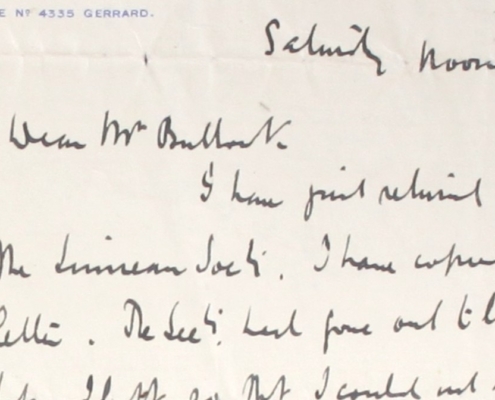 E Nº 4335 GERRARD.
Saturday Noon
Dear Mr Bullock
I have just returned
the Linnean Socty. I have copie
letter. The Secty. had gone out to l
so that I could not